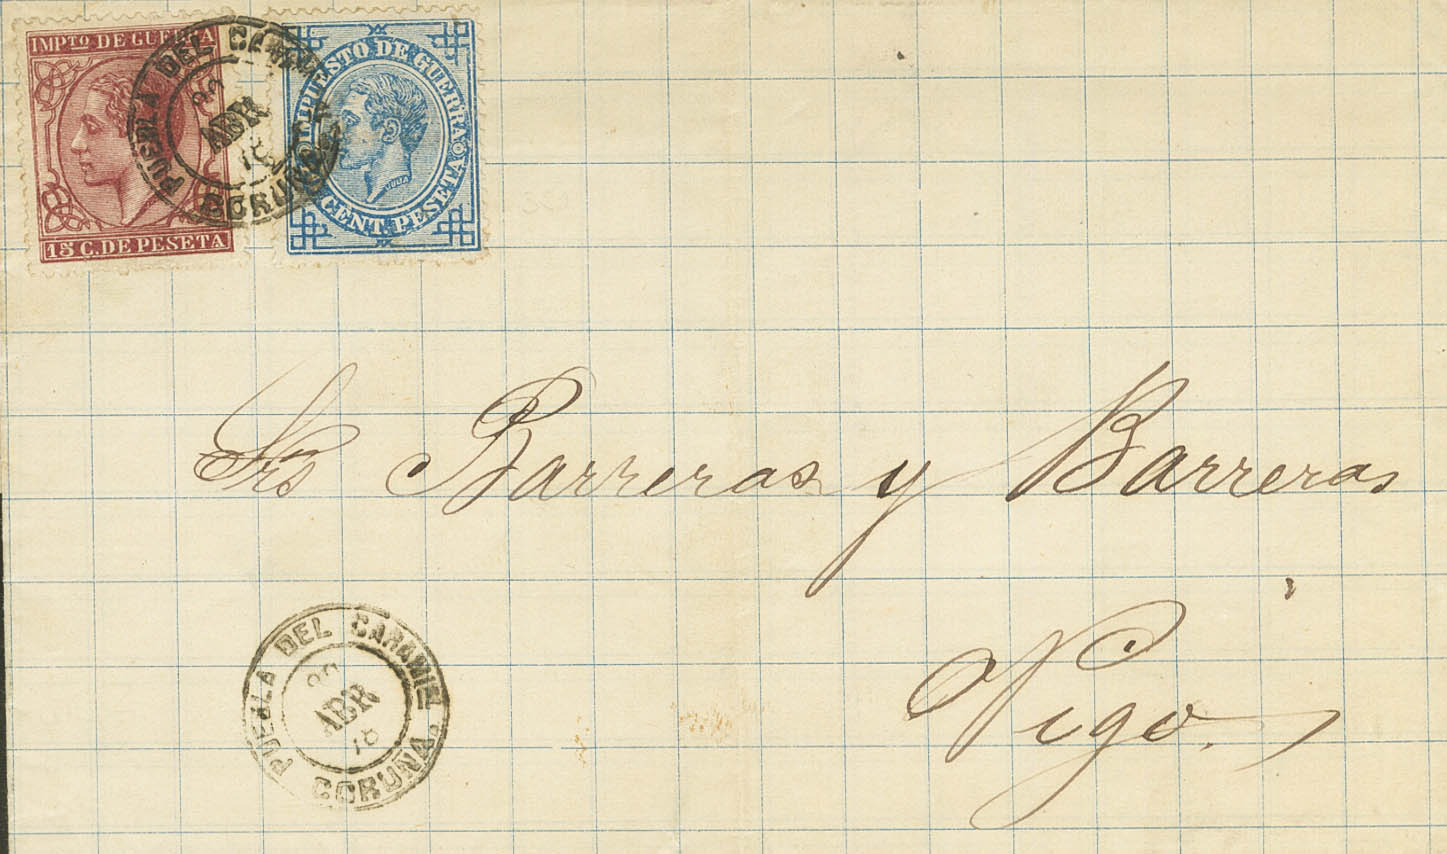 IMPTO DE GUERRA
15 C. DE PESETA
IMPUESTO DE GUERRA
CENT. PESETA
JULIA
PUEBLA DEL CARAMIÑAL
ABR
CORUÑA
Srs Barreras y Barreras
Vigo.
PUEBLA DEL CARAMIÑAL
ABR
78
CORUÑA.